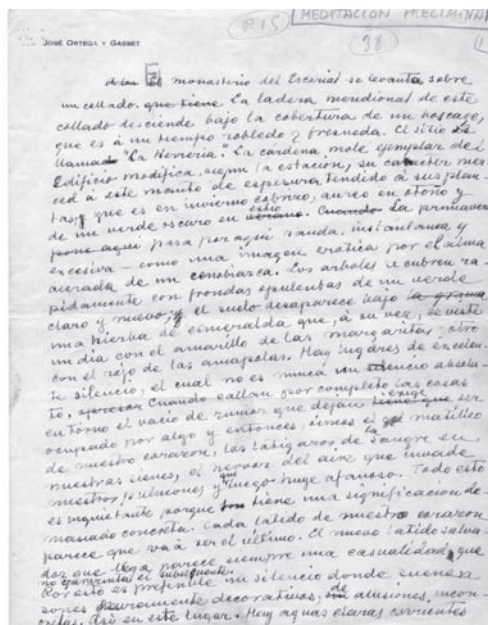 R15
MEDITACION PRELIMINA
38
JOSÉ ORTEGA Y GASSET
El monasterio del Escorial se levanta sobre
un collado. que tiene La ladera meridional de este
collado desciende bajo la cobertura de un boscage,
que es á un tiempo robledo y fresneda. El sitio se
llamado "La Herrería". La cárdena mole ejemplar del
Edificio modifica, según la estación, su carácter mer
ced a este manto de espesura tendido á sus plan
tas, que es en invierno cobrizo, aureo en otoño y
de un verde oscuro en verano. estío. Cuando La primavera
pone aquí pasa por aquí rauda, instantanea y
excesiva — como una imagen erótica por el alma
acerada de un cenobiarca. Los arboles se cubren ra
pidamente con frondas opulentas de un verde
claro y nuevo; y el suelo desaparece bajo la grama
una hierba de esmeralda que, á su vez, se viste
un día con el amarillo de las margaritas, otro
con el rojo de las amapolas. Hay lugares de excelen
te silencio, el cual no es nunca un silencio absolu
to. Cuando callan por completo las cosas
en torno el vacío de rumor que dejan tiene que exige ser
ocupado por algo y entonces oimos el martilleo
de nuestro corazon, los latigazos de la sangre en
nuestras sienes, el hervor del aire que invade
nuestros pulmones y que luego huye afanoso. Todo esto
es inquietante porque tiene una significación de
masiado concreta. Cada latido de nuestro corazon
parece que va á ser el último. El nuevo latido salva
dor que llega parece siempre una casualidad y que
no garantiza el subsecuente.
Por esto es preferible un silencio donde suenen
sones puramente decorativos, de alusiones incon
cretas. Así en este lugar. Hay aguas claras corrientes